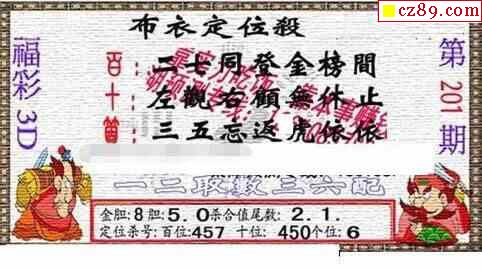 cz89.com
布衣定位殺
福彩3D
第201期
百:二七同登金榜間
十:左觀右顧無休止
箇:三五忘返虎依依
一二取數三六配
金胆:8胆:5.0杀合值尾数:2.1.
定位杀号:百位:457 十位:450个位:6